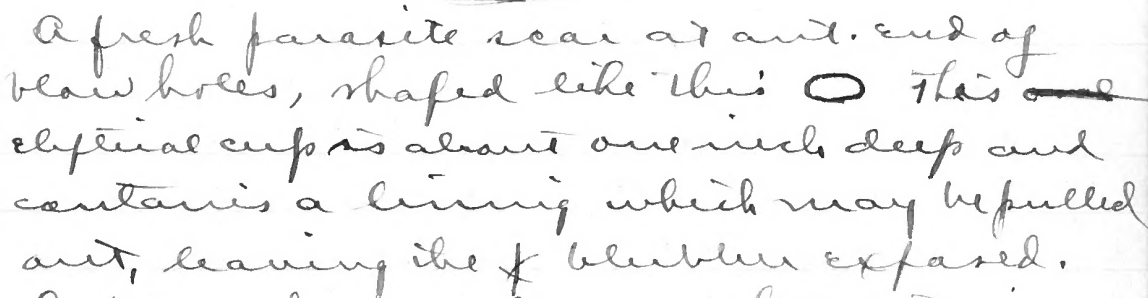 A fresh parasite scar at ant. end of
blow holes, shaped like this This oval
eliptical cup is about one inch deep and
contains a lining which may be pulled
out, leaving the blubber exposed.